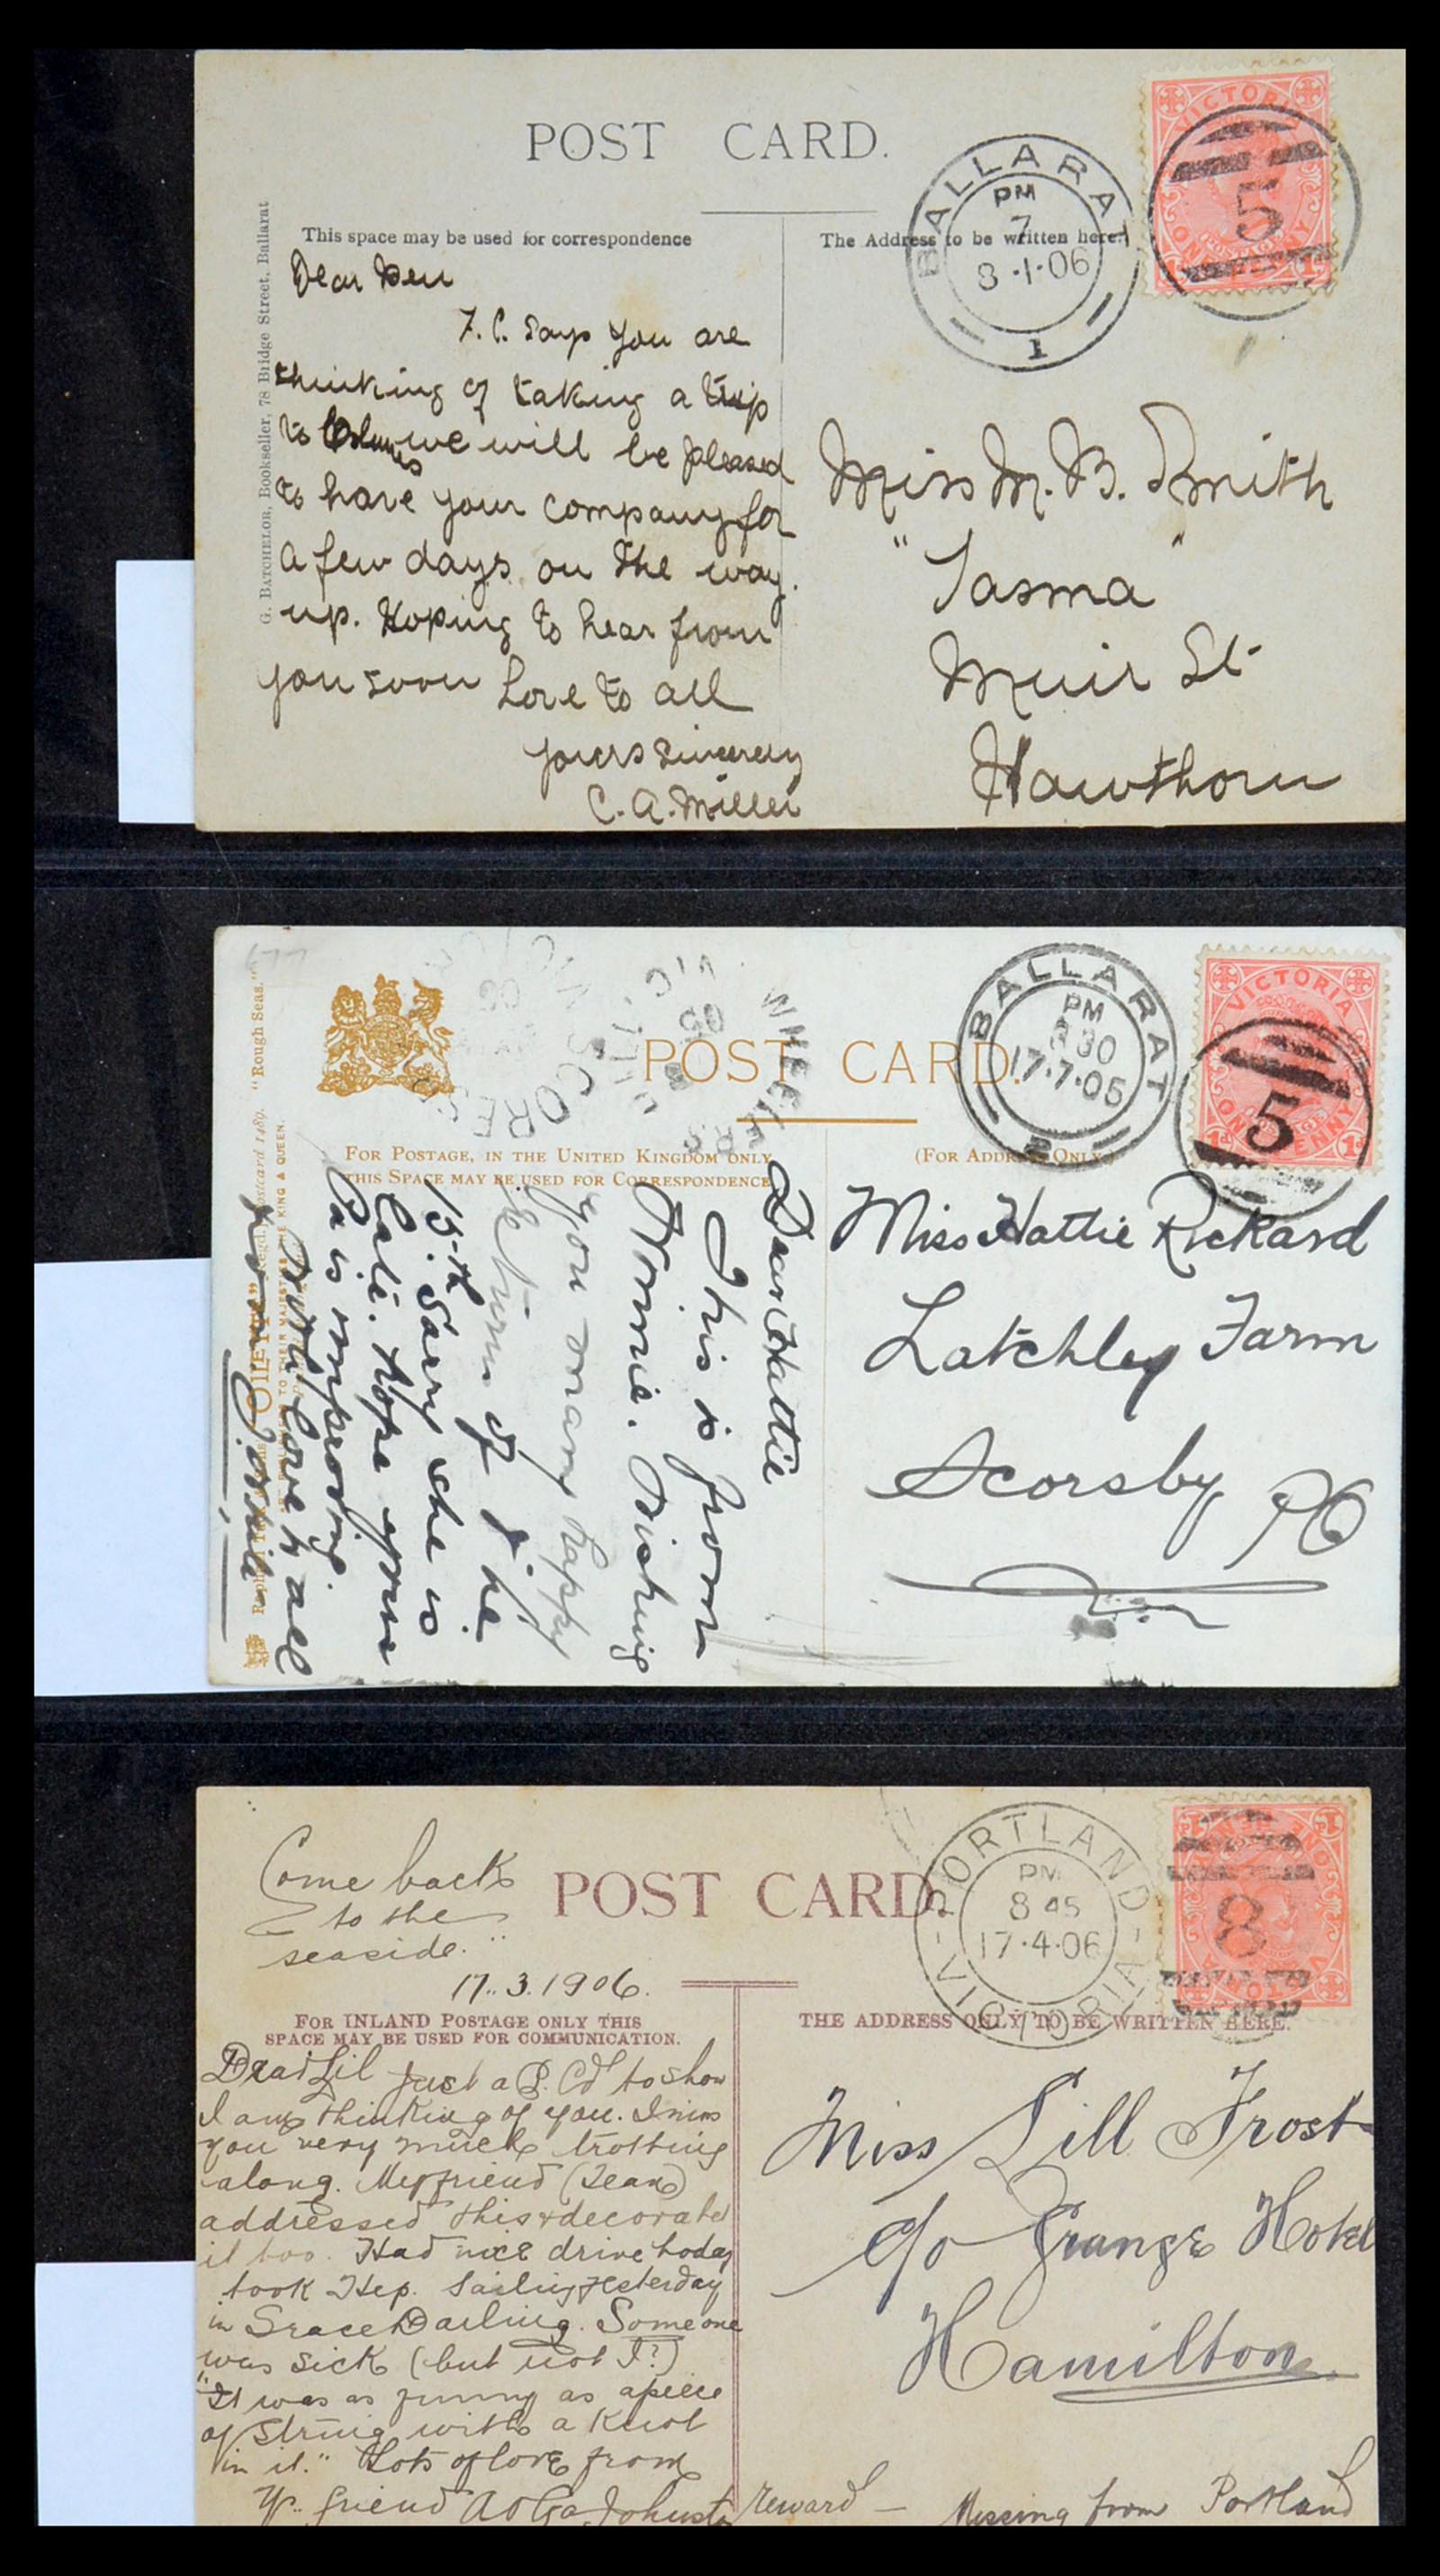 POST CARD.
BALLARAT
PM
7
8·1·06
1
VICTORIA
ONE PENNY
5
G. BATCHELOR, Bookseller, 78 Bridge Street, Ballarat
This space may be used for correspondence
The Address to be written here.
Dear
F. C. says you are
thinking of taking a trip
to we will be pleased
to have your company for
a few days on the way
up. Hoping to hear from
you soon Love to all
yours sincerely
C. A. Miller
Miss M. B. Smith
"Tasma"
Muir St
Hawthorn
POST CARD.
BALLARAT
PM
17·7·05
VICTORIA
ONE PENNY
5
"Rough Seas."
FOR POSTAGE, IN THE UNITED KINGDOM ONLY,
THIS SPACE MAY BE USED FOR CORRESPONDENCE
(FOR ADDRESS ONLY.)
Dear Hattie
This is from
Wishing
you many happy
returns of the
15th. Sorry she is
late. Hope your
Pa is improving.
With love to all
from
Miss Hattie Rickard
Latchley Farm
Scorsby PO
Come back
to the
seaside."
17.3.1906.
POST CARD.
PORTLAND
VICTORIA
PM
8 45
17·4·06
8
FOR INLAND POSTAGE ONLY THIS
SPACE MAY BE USED FOR COMMUNICATION.
THE ADDRESS ONLY TO BE WRITTEN HERE.
Dear Lil Just a P. Cd to show
I am thinking of you. I miss
you very much trotting
along. My friend (Jean)
addressed this & decorated
it too. Had nice drive today
took Hep. Sailing yesterday
in Grace Darling. Someone
was sick (but not I?)
"It was as funny as a piece
of string with a knot
in it." Lots of love from
Yr. friend
Miss Lill Frost
c/o Grange Hotel
Hamilton
reward — Missing from Portland